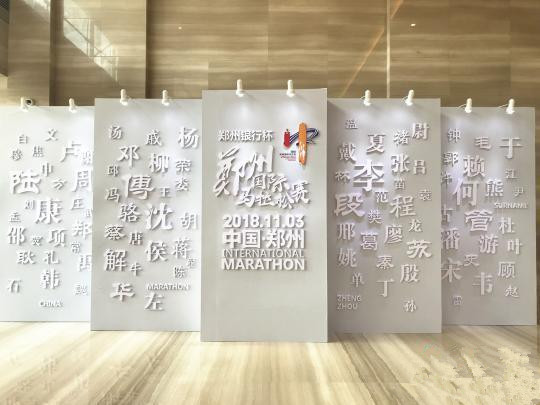 白 文
穆 焦 卢
陆 申 方 周
孟 刘 庄
邵 康 武
窦 项 郑
耿 孔 禹
石 韩 魏
CHINA
汤 戚 杨
邓 柳 荣
邱 裴
冯 傅 王
骆 沈 胡
蔡 唐
解 侯 蒋
范 陈
华 MARATHON
左
郑州银行杯
郑州国际
马拉松赛
2018.11.03
中国·郑州
INTERNATIONAL
MARATHON
温 褚 尉
戴 夏
林 李 张 吕
苗 袁
段 范 樊 程
邢 葛 廖 龙
苏
姚 秦
单 丁 殷
ZHENG
ZHOU 孙
钟 毛 于
郭 许 赖
江 尹
何 熊
SURNAME
古 管
潘 游 杜
叶
宋 史 韦 顾
雷 赵